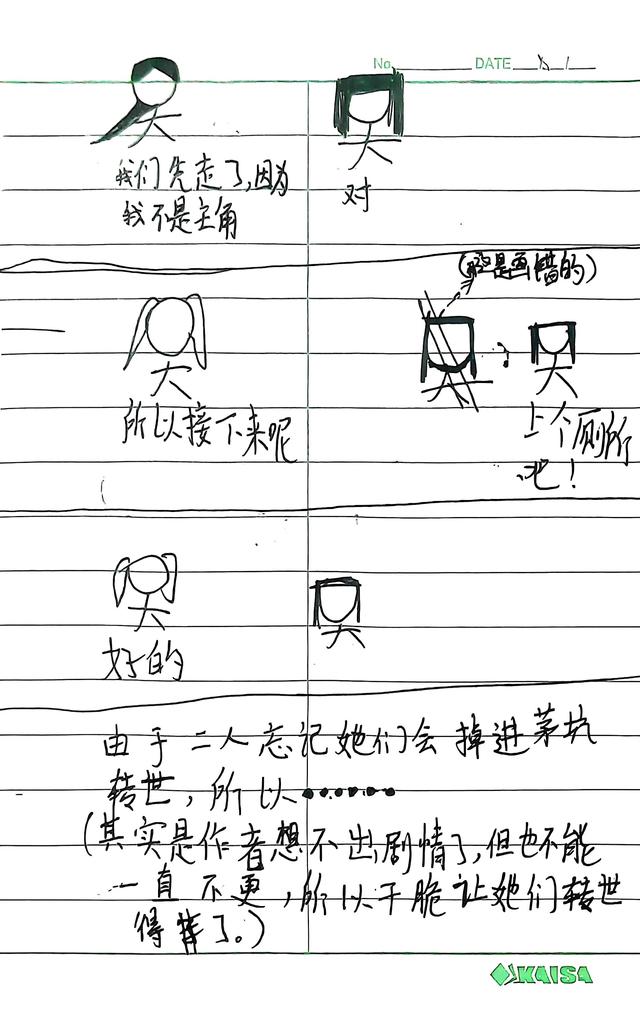 No. DATE
我们先走了,因为
我不是主角
对
(那是画错的)
所以接下来呢
上个厕所
吧!
好的
由于二人忘记她们会掉进茅坑
转世,所以••••••
(其实是作者想不出剧情了,但也不能
一直不更,所以干脆让她们转世
得算了。)
KAISA